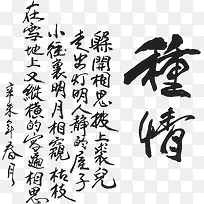 種情
躲開相思披上裘兒
走出灯明人靜的屋子
小徑裏明月相窺枯枝
在雪地上又縱橫的寫遍相思
辛未年春月